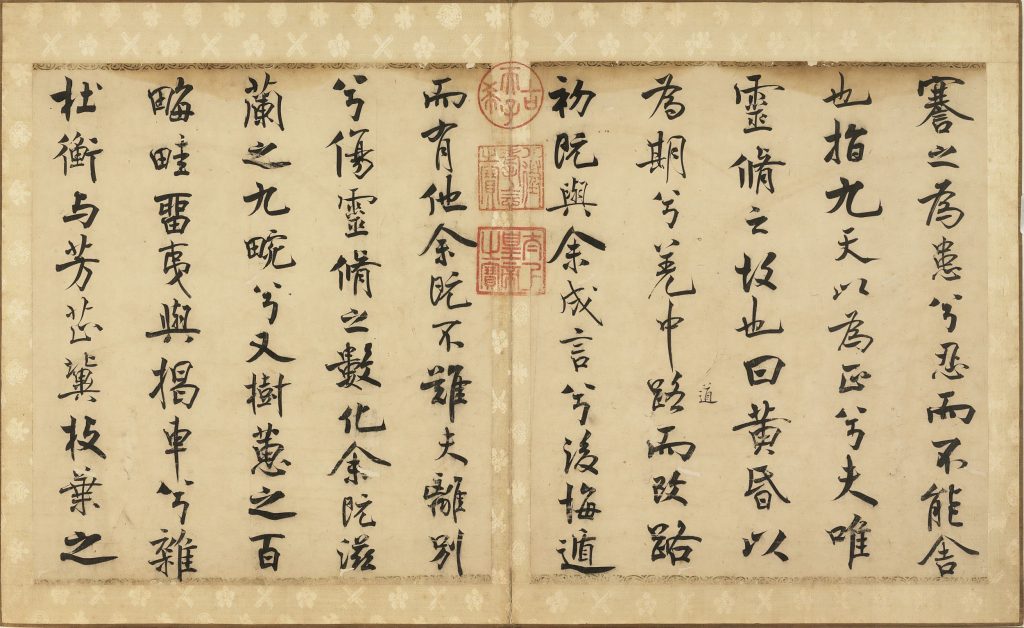 謇之為患兮忍而不能舍
也指九天以為正兮夫唯
靈脩之故也曰黃昏以
為期兮羌中路而改路
道
初既與余成言兮後悔遁
而有他余既不難夫離別
兮傷靈脩之數化余既滋
蘭之九畹兮又樹蕙之百
畮畦畱夷與揭車兮雜
杜衡与芳芷冀枝葉之
古希天子
太上皇帝之寶